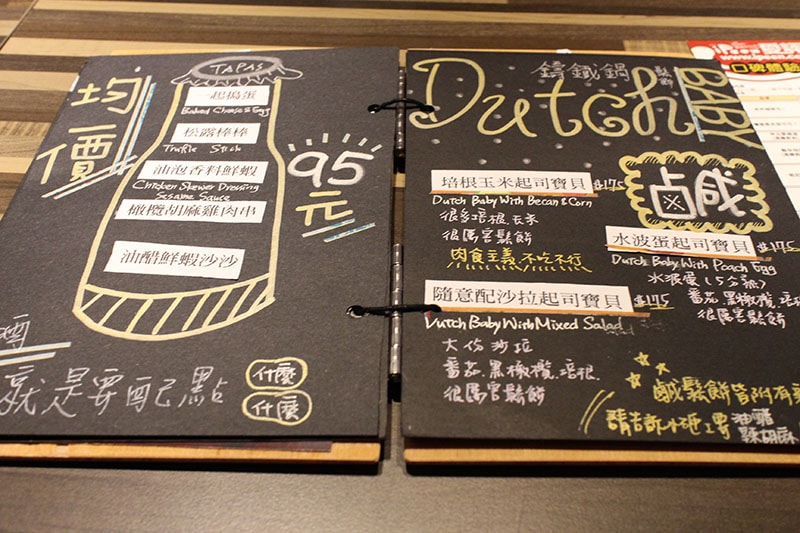 均價
TAPAS
一起搗蛋
Baked Cheese & Egg
松露棒棒
Truffle Stick
油泡香料鮮蝦
Chicken Skewer Dressing
Sesame Sauce
橄欖胡麻雞肉串
油醋鮮蝦沙沙
95元
就是要配己點
什麼
什麼
鑄鐵鍋鬆餅
Dutch
BABY
鹵咸
培根玉米起司寶貝 $175
Dutch Baby With Becan & Corn
很多培根.玉米
很厲害鬆餅
肉食主義 不吃不行
水波蛋起司寶貝 $175
Dutch Baby With Poach Egg
水波蛋(5分熟)
番茄.黑橄欖.培根
很厲害鬆餅
隨意配沙拉起司寶貝 $175
Dutch Baby With Mixed Salad
大份沙拉
番茄.黑橄欖.培根.
很厲害鬆餅
鹹鬆餅皆附有
請告訴小砸ㄧ要 油醋
胡麻
iPeen 愛評
www.ipeen.co
口碑體驗